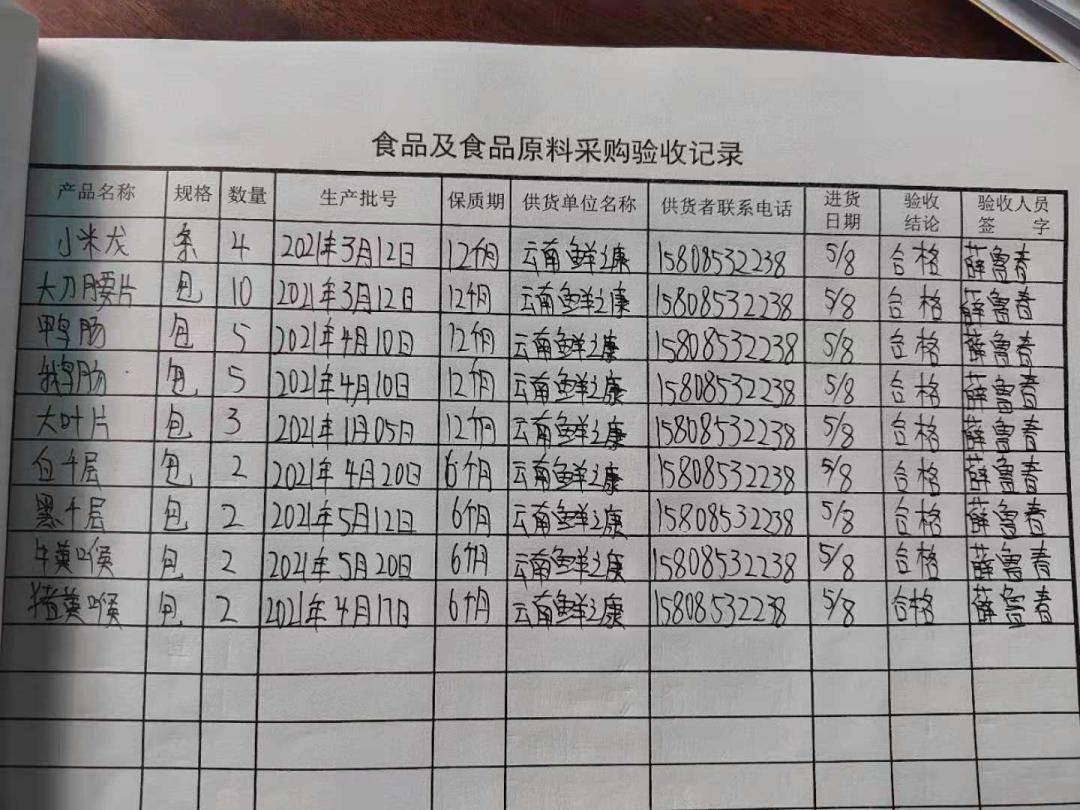 食品及食品原料采购验收记录
产品名称 规格 数量 生产批号 保质期 供货单位名称 供货者联系电话 进货日期 验收结论 验收人员签字
小米龙 条 4 2021年3月12日 12个月 云南鲜之康 15808532238 5/8 合格 薛鲁春
大刀腰片 包 10 2021年3月12日 12个月 云南鲜之康 15808532238 5/8 合格 薛鲁春
鸭肠 包 5 2021年4月10日 12个月 云南鲜之康 15808532238 5/8 合格 薛鲁春
鹅肠 包 5 2021年4月10日 12个月 云南鲜之康 15808532238 5/8 合格 薛鲁春
大叶片 包 3 2021年1月05日 12个月 云南鲜之康 15808532238 5/8 合格 薛鲁春
白千层 包 2 2021年4月20日 6个月 云南鲜之康 15808532238 5/8 合格 薛鲁春
黑千层 包 2 2021年5月12日 6个月 云南鲜之康 15808532238 5/8 合格 薛鲁春
牛黄喉 包 2 2021年5月20日 6个月 云南鲜之康 15808532238 5/8 合格 薛鲁春
猪黄喉 包 2 2021年4月17日 6个月 云南鲜之康 15808532238 5/8 合格 薛鲁春